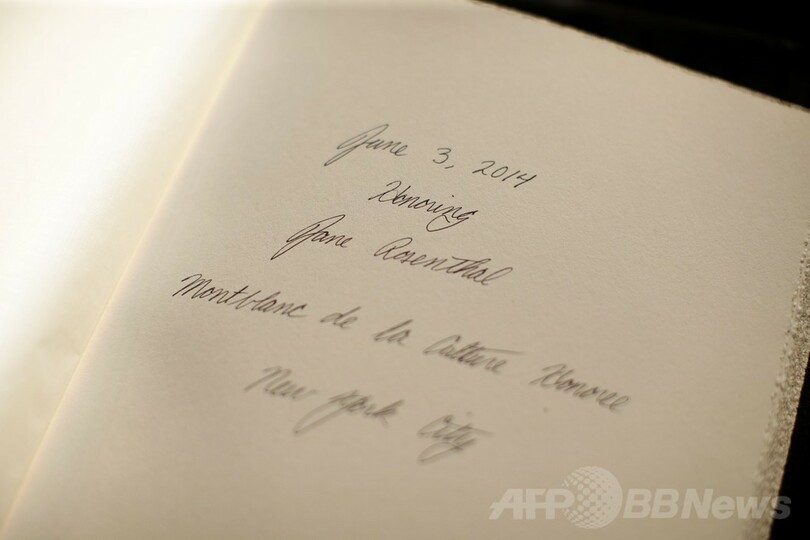 June 3, 2014
Honoring
Jane Rosenthal
Montblanc de la Culture Honoree
New York City
AFP BBNews